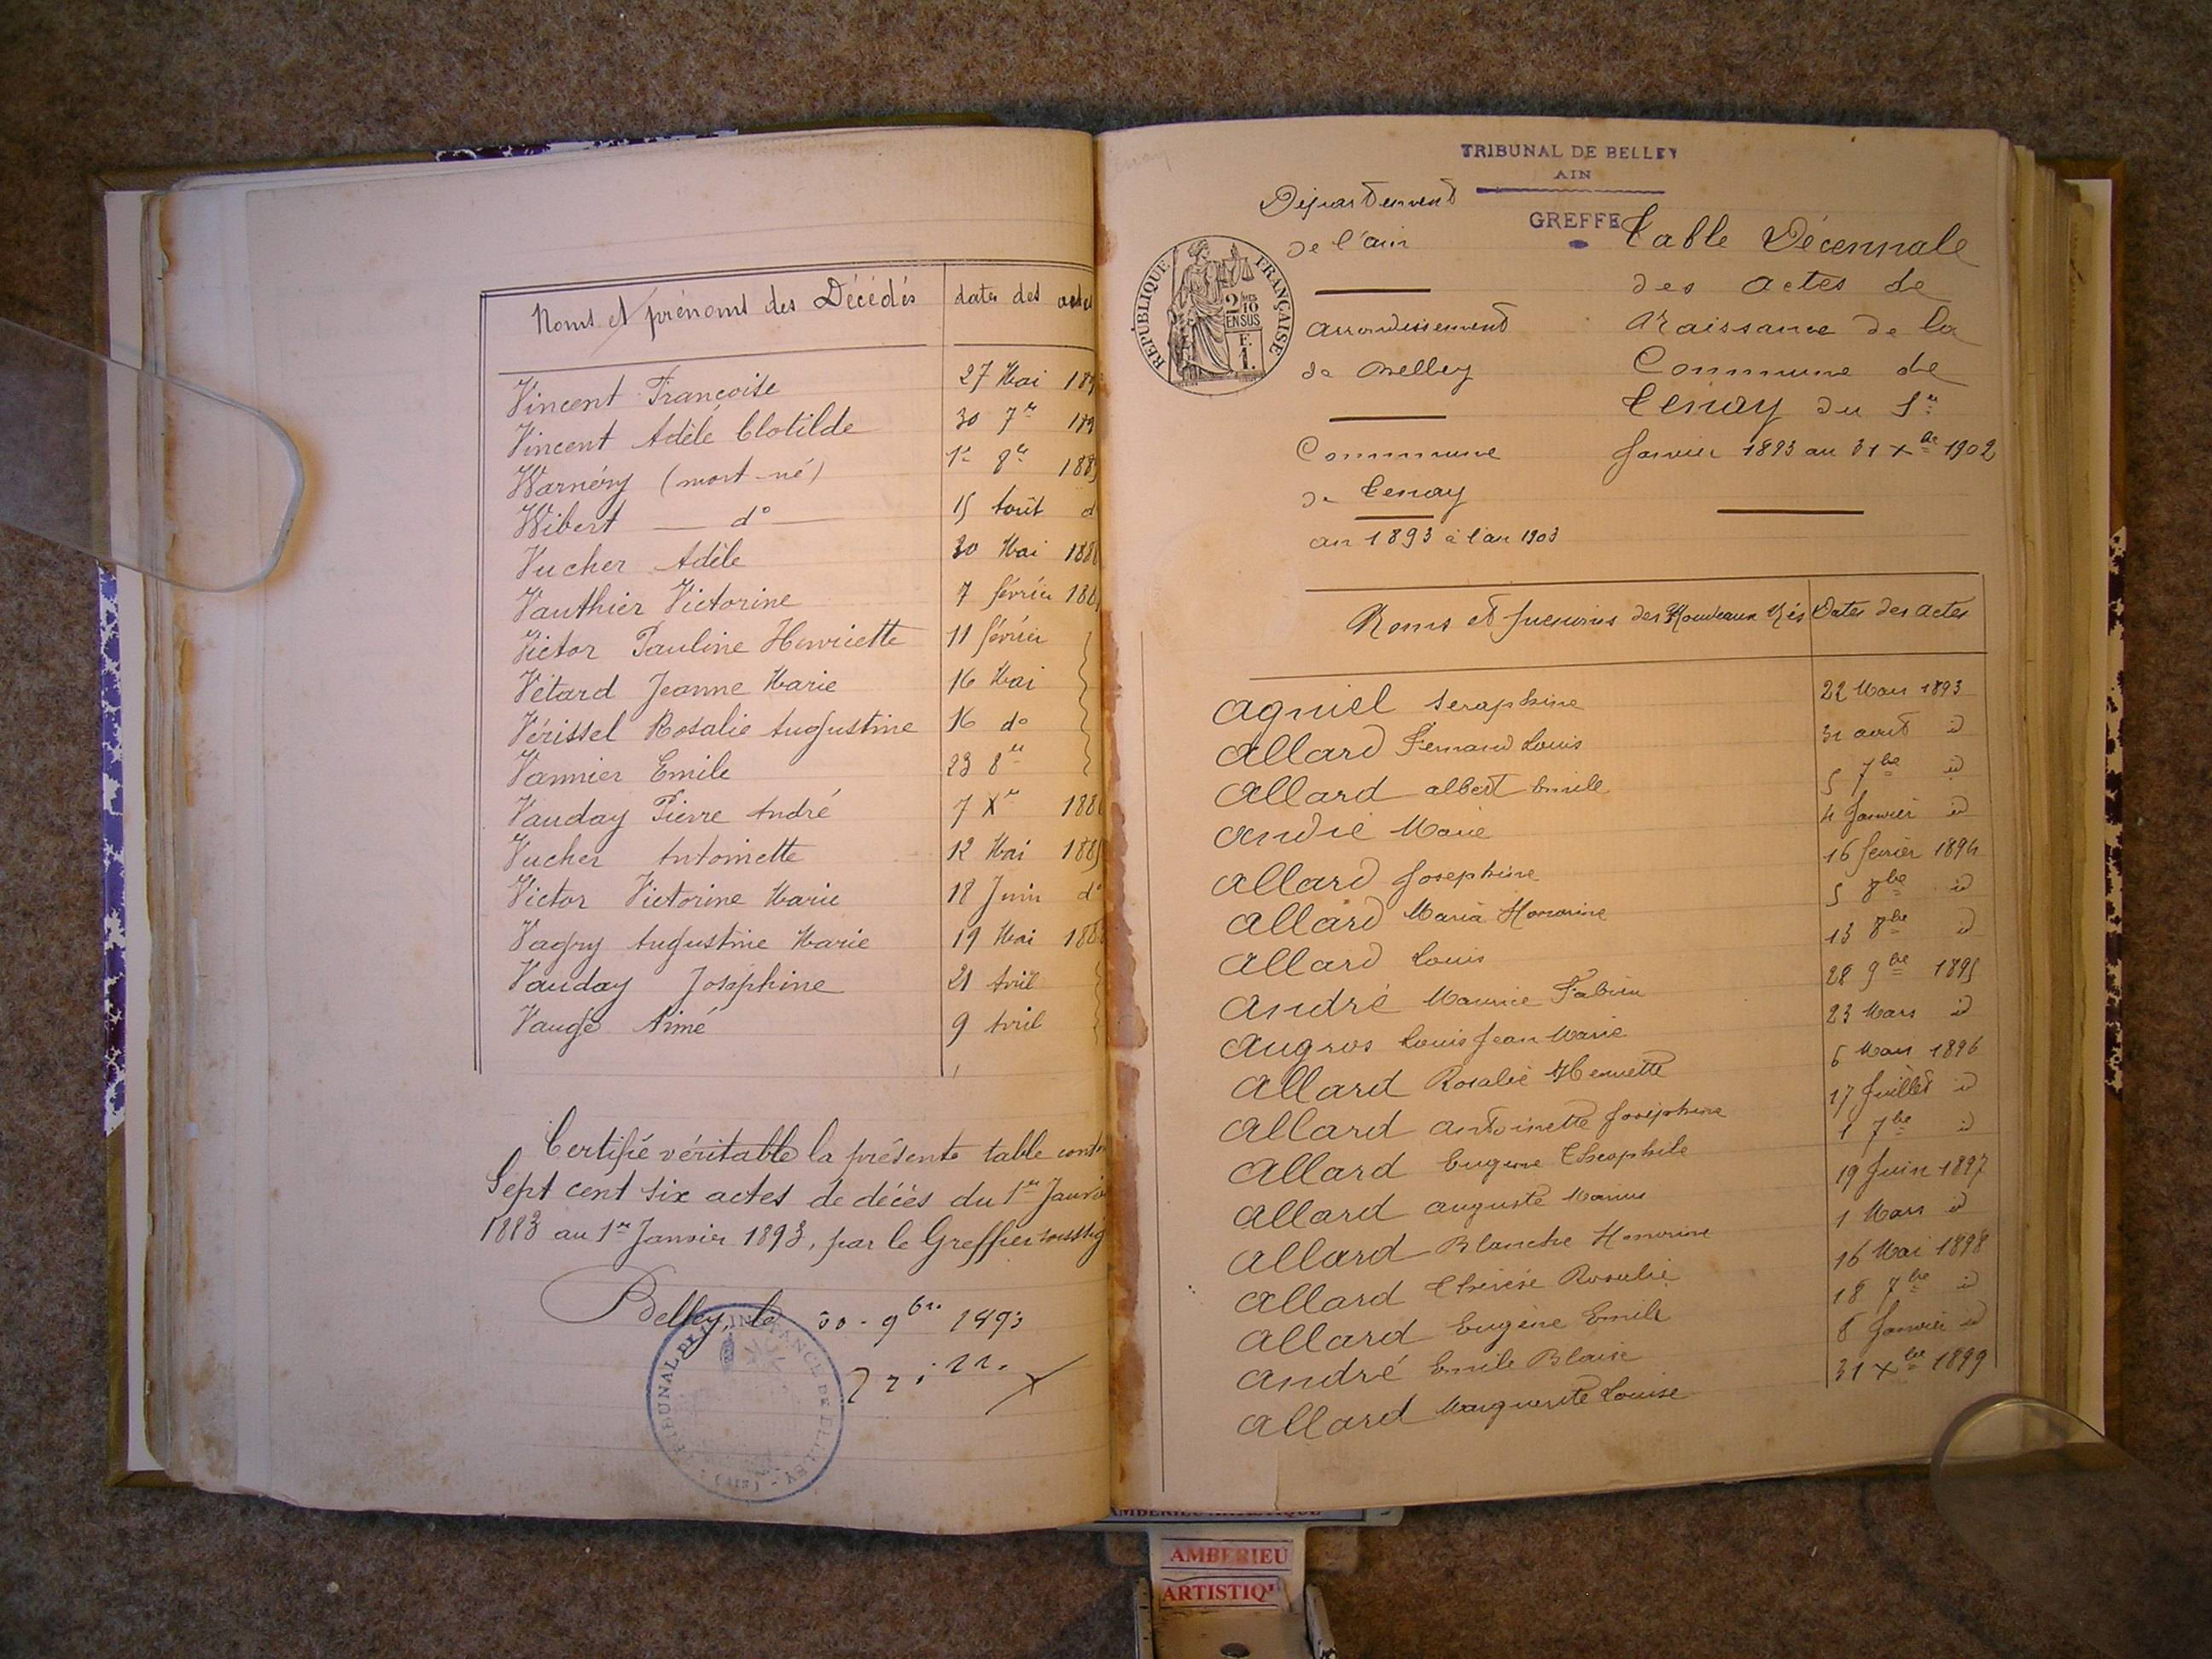 Noms et prénoms des Décédés dates des
Vincent Françoise 27 Mai
Vincent Adèle Clotilde 30 7re
Warnéry (mort-né) 1er 8re
Wibert — do — 15 Août
Vucher Adèle 30 Mai
Vauthier Victorine 7 février
Victor Pauline Henriette 11 février
Vétard Jeanne Marie 16 Mai
Vérissel Rosalie Augustine 16 do
Vannier Emile 23 8re
Vauday Pierre André 7 Xre
Vucher Antoinette 12 Mai
Victor Victorine Marie 18 Juin do
Vagny Augustine Marie 19 Mai
Vauday Joséphine 21 Avril
Vaugé Aimé 9 Avril
Certifié véritable la présente table
Sept cent six actes de décès du 1er
1883 au 1er Janvier 1893, par le Greffier
Belley, le 30 - 9bre 1893
TRIBUNAL DE BELLEY
AIN
GREFFE
Département
de l'ain
arrondissement
de Belley
Commune
de Tenay
an 1893 à l'an 1903
RÉPUBLIQUE FRANÇAISE
2/10
EN SUS
F.
1.
Table Décennale
des actes de
Naissance de la
Commune de
Tenay du 1er
Janvier 1893 au 31 Xbre 1902
Noms et prénoms des Nouveaux Nés Dates des actes
Agniel Seraphine 22 Mars 1893
Allard Fernand Louis 31 aout id
Allard albert Emile 5 7bre id
André Marie 4 Janvier id
Allard Josephine 16 fevrier 1894
Allard Maria Honorine 5 8bre id
Allard Louis 13 8bre id
André Maurice Fabien 28 9bre 1895
Augros Louis Jean Marie 23 Mars id
Allard Rosalie Henriette 6 Mars 1896
Allard Antoinette Joséphine 17 Juillet id
Allard Eugene Theophile 1 7bre id
Allard Auguste Marius 19 Juin 1897
Allard Blanche Honorine 1 Mars id
Allard Thérèse Rosalie 16 Mai 1898
Allard Eugène Emile 18 7bre id
André Emile Blaise 8 Janvier id
Allard Marguerite Louise 31 Xbre 1899
AMBERIEU
ARTISTIQ